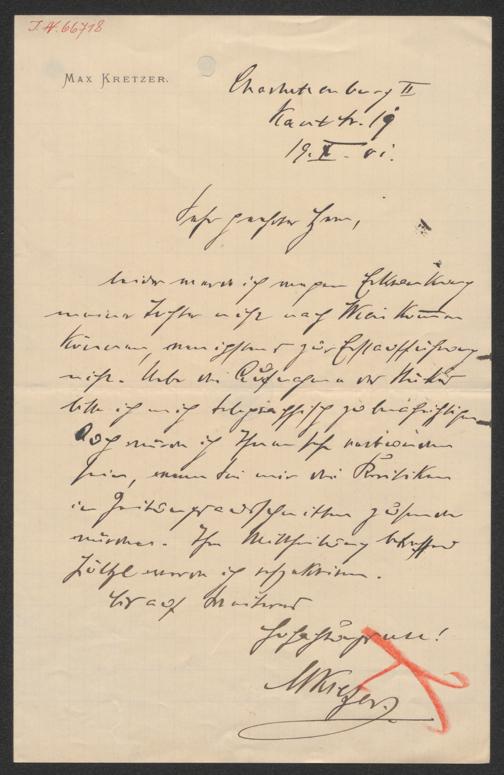 J.N. 66718
MAX KRETZER.
Charlottenburg II
Kantstr. 19
19. X. 01.
Sehr geehrter Herr,
leider werde ich wegen Erkrankung
meiner Tochter nicht nach Wien kommen
können, wenigstens zur Erstaufführung
nicht. Ueber die Aufnahme des Stückes
bitte ich mich telegraphisch zu benachrichtigen
Doch würde ich Ihnen sehr verbunden
sein, wenn Sie mir die Kritiken
in Zeitungsausschnitten zusenden
würden. Ihre Mittheilung betreffend
werde ich respektiren.
Bis auf Weiteres
Hochachtungsvoll!
MKretzer.